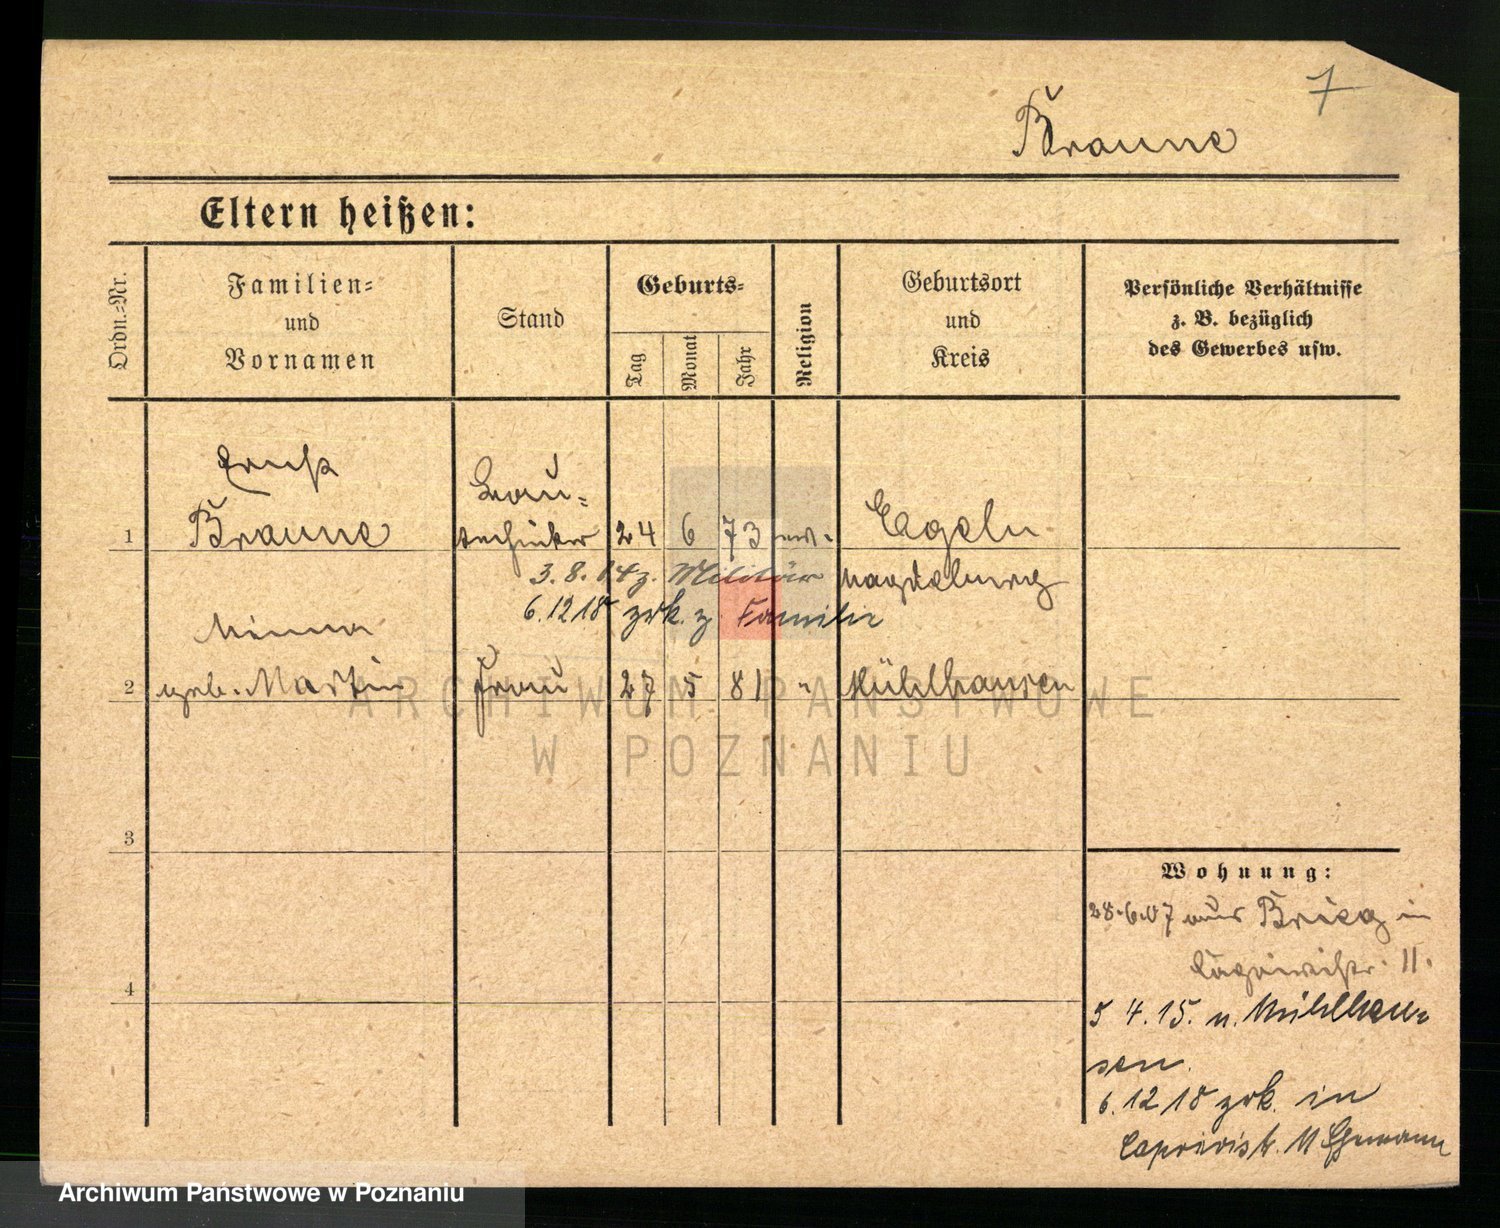 7
Braune
Eltern heißen:
Ordn.=Nr.
Familien=
und
Vornamen
Stand
Geburts=
Tag
Monat
Jahr
Religion
Geburtsort
und
Kreis
Persönliche Verhältnisse
z. B. bezüglich
des Gewerbes usw.
Ernst
Bau=
1 Braune techniker 24 6 73 ev. Egeln
3.8.14 z. Militär Magdeburg
6.12 18 zrk. z. Familie
Minna
2 geb. Martin Frau 27 5 81 " Mühlhausen
ARCHIWUM PAŃSTWOWE
W POZNANIU
3
4
Wohnung:
28.6.07 aus Brieg in
11.
5 4.15. n. Mühlhau=
sen.
6.12 18 zrk. in
Caprivistr. 11 Ehemann
Archiwum Państwowe w Poznaniu